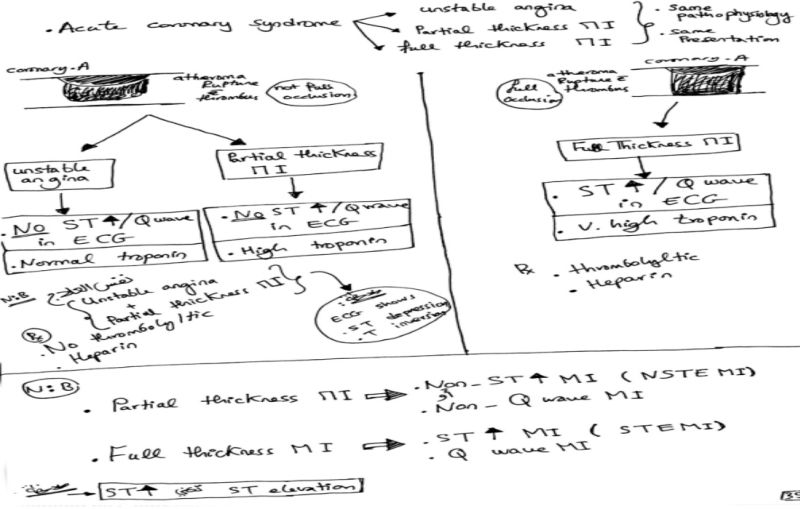 • Acute coronary syndrome
unstable angina
Partial thickness MI
full thickness MI
• same pathophysiology
• same Presentation
coronary.A
atheroma Rupture & thrombus
not full occlusion
unstable angina
Partial thickness MI
• No ST ↑ / Q wave in ECG
• Normal troponin
• No ST ↑ / Q wave in ECG
• High troponin
N:B
• Unstable angina
+
• Partial thickness MI
Rx
• No thrombolyltic
• Heparin
ECG shows
• ST depression
• T inversion
coronary.A
atheroma Rupture & thrombus
full occlusion
Full Thickness MI
• ST ↑ / Q wave in ECG
• V. high troponin
Rx • thrombolyltic
• Heparin
N:B
• Partial thickness MI ⇒ • Non-ST ↑ MI (NSTEMI)
or
• Non-Q wave MI
• Full thickness MI ⇒ • ST ↑ MI (STEMI)
• Q wave MI
ST ↑ يعني ST elevation